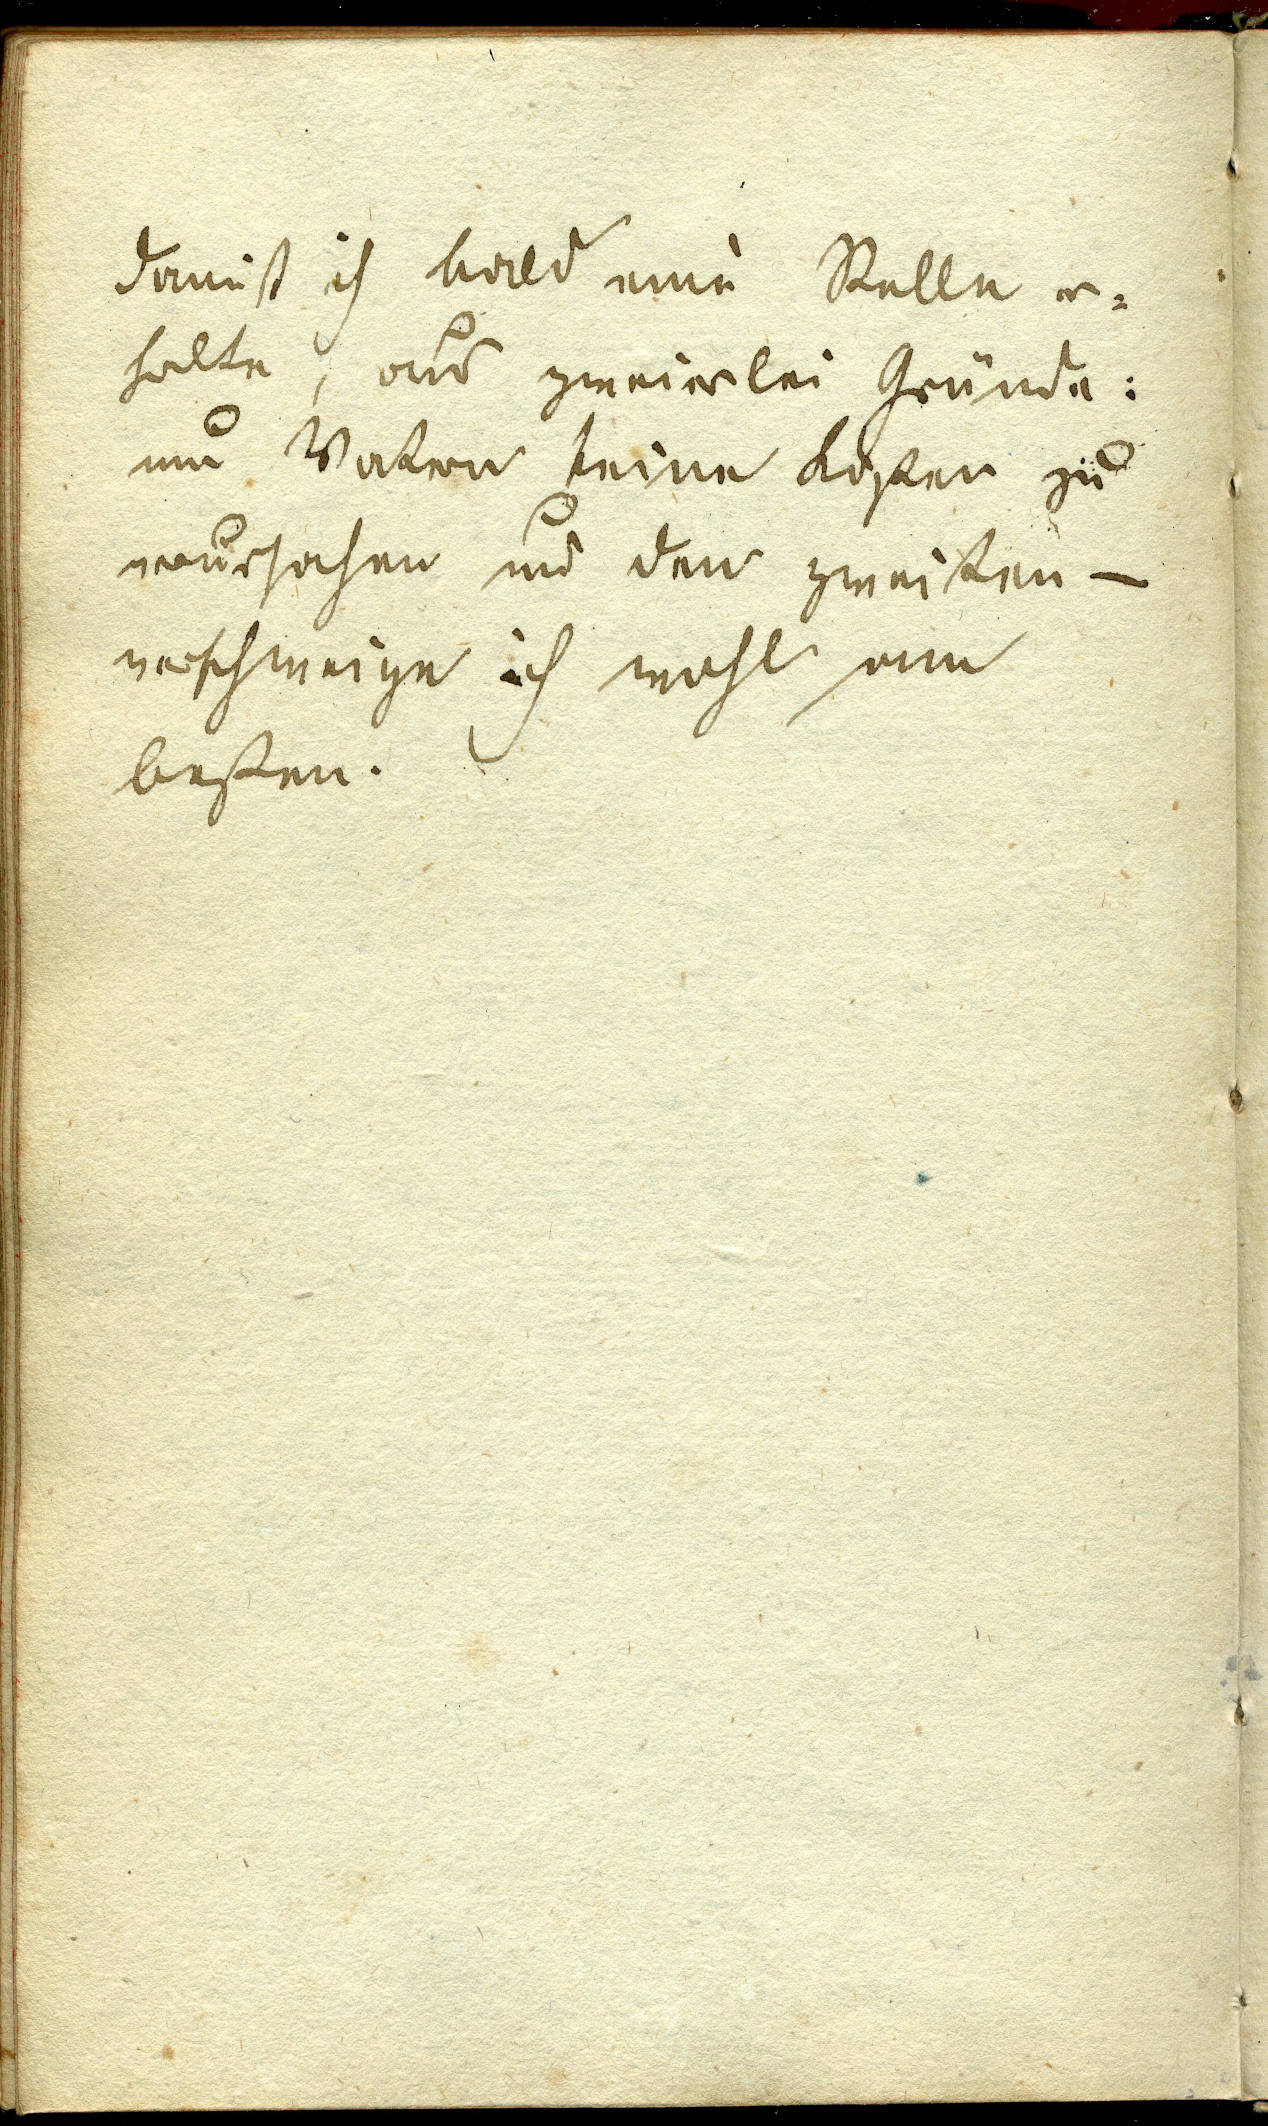 damit ich bald eine Stelle er-
halte, aus zweierlei Gründe:
um Vatern keine Kosten zu
verursachen und den zweiten —
verschweige ich wohl am
besten.